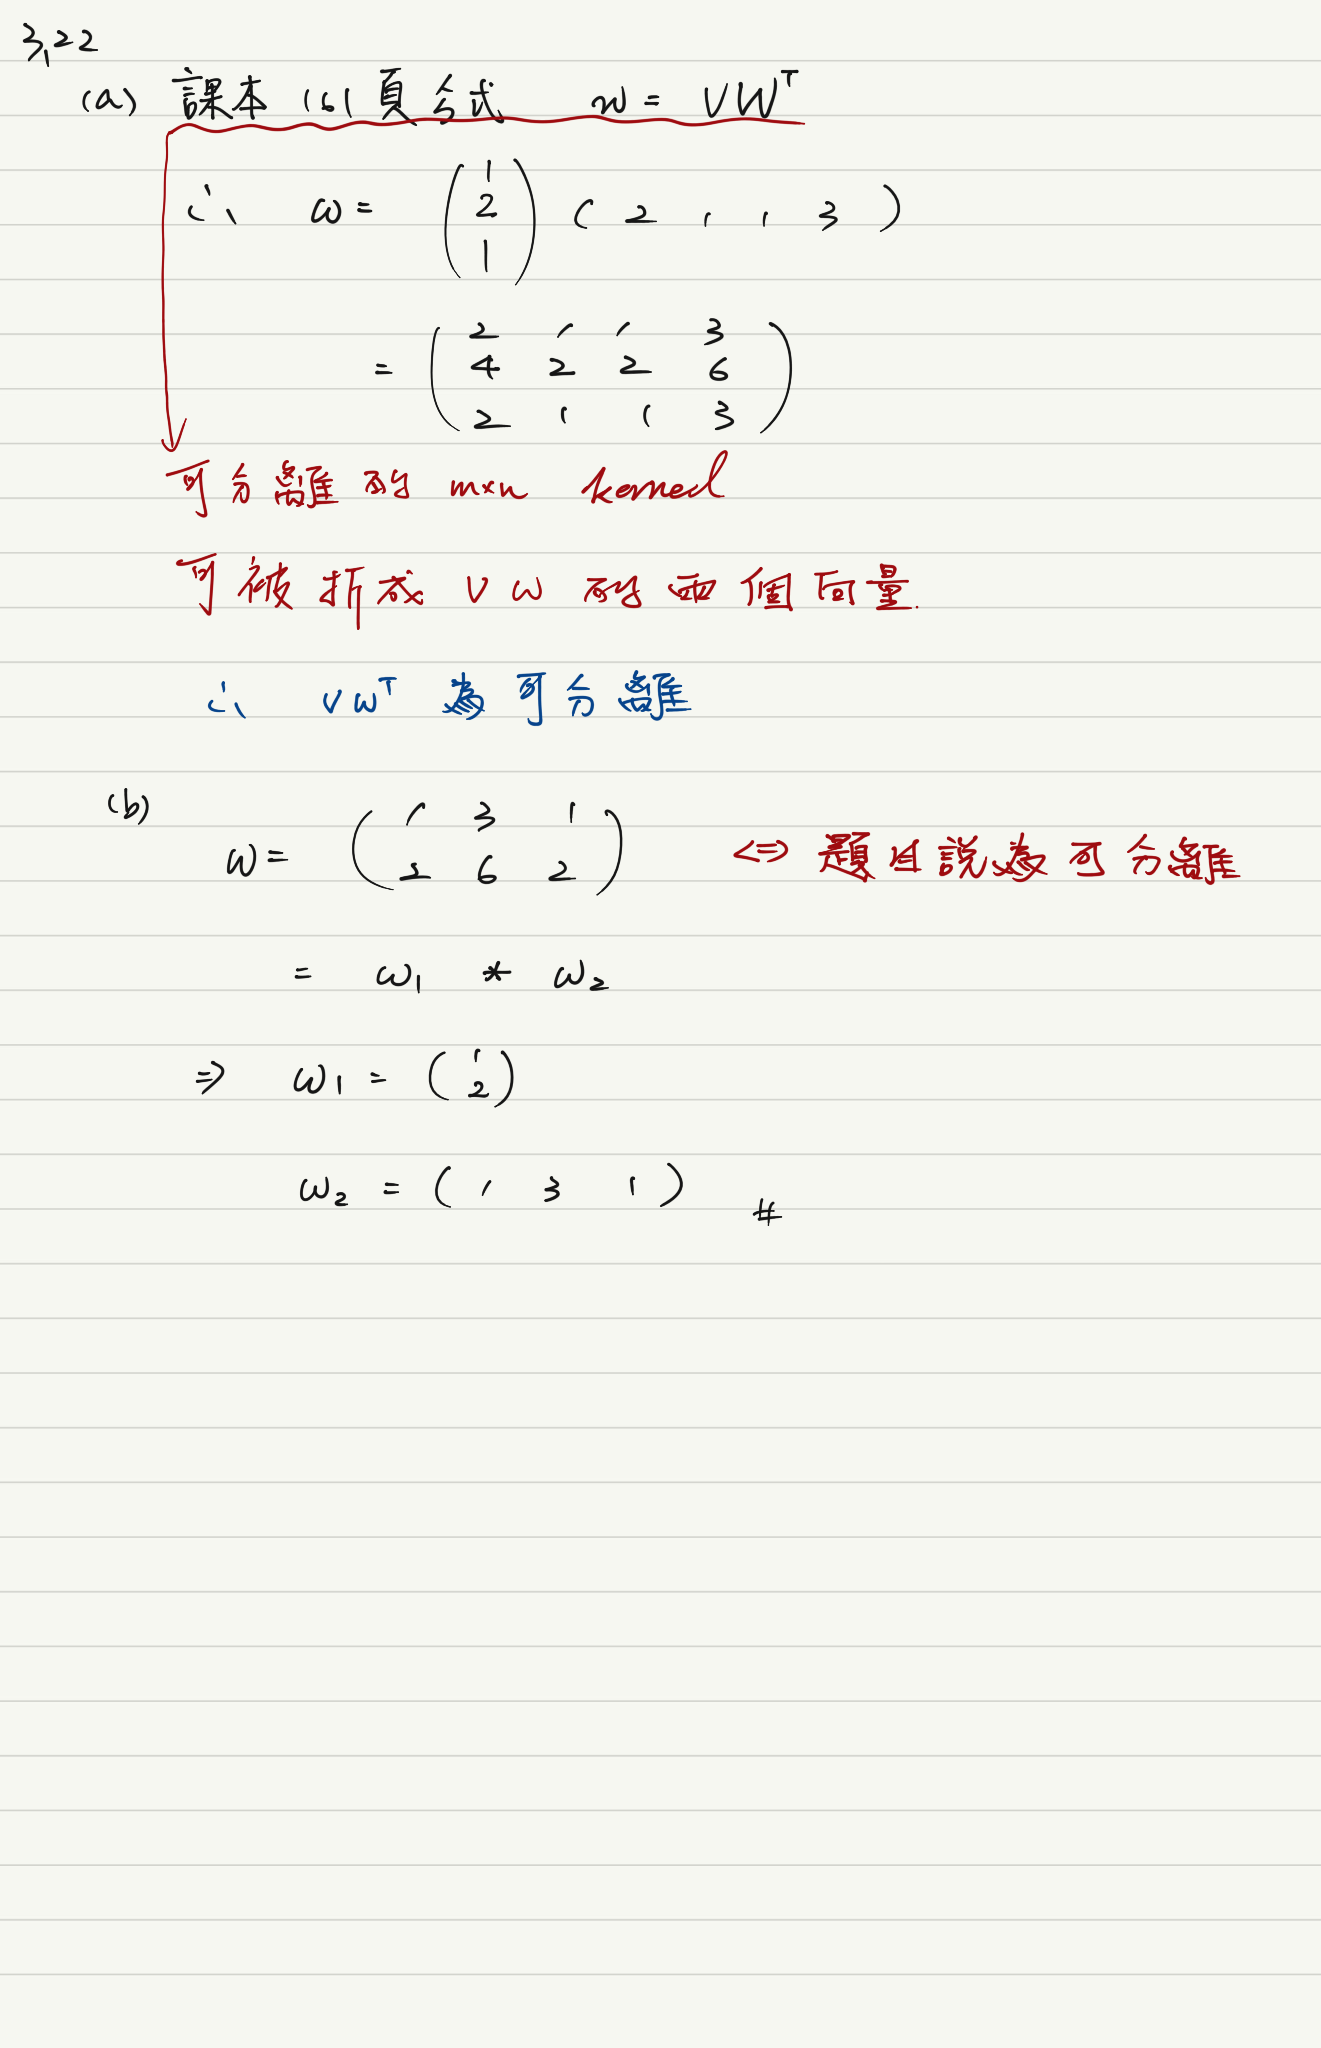 3.22
(a) 課本 161 頁公式 w = VW^T
∴ w = (1 2 1) (2 1 1 3)
= (2 1 1 3
4 2 2 6
2 1 1 3)
可分離的 m×n kernel
可被拆成 V w 的兩個向量.
∴ vw^T 為可分離
(b) w = (1 3 1
2 6 2) <=> 題目說為可分離
= w1 * w2
⇒ w1 = (1 2)
w2 = (1 3 1) #